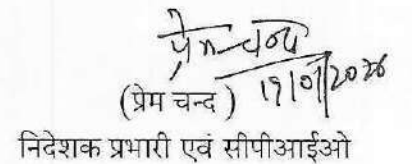 प्रेम चन्द
(प्रेम चन्द) 19/01/2026
निदेशक प्रभारी एवं सीपीआईईओ